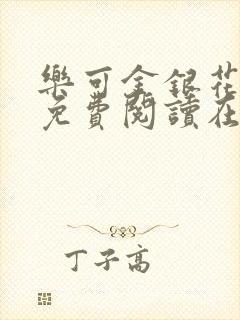 樂可金銀花
免費閱讀在
丁子高